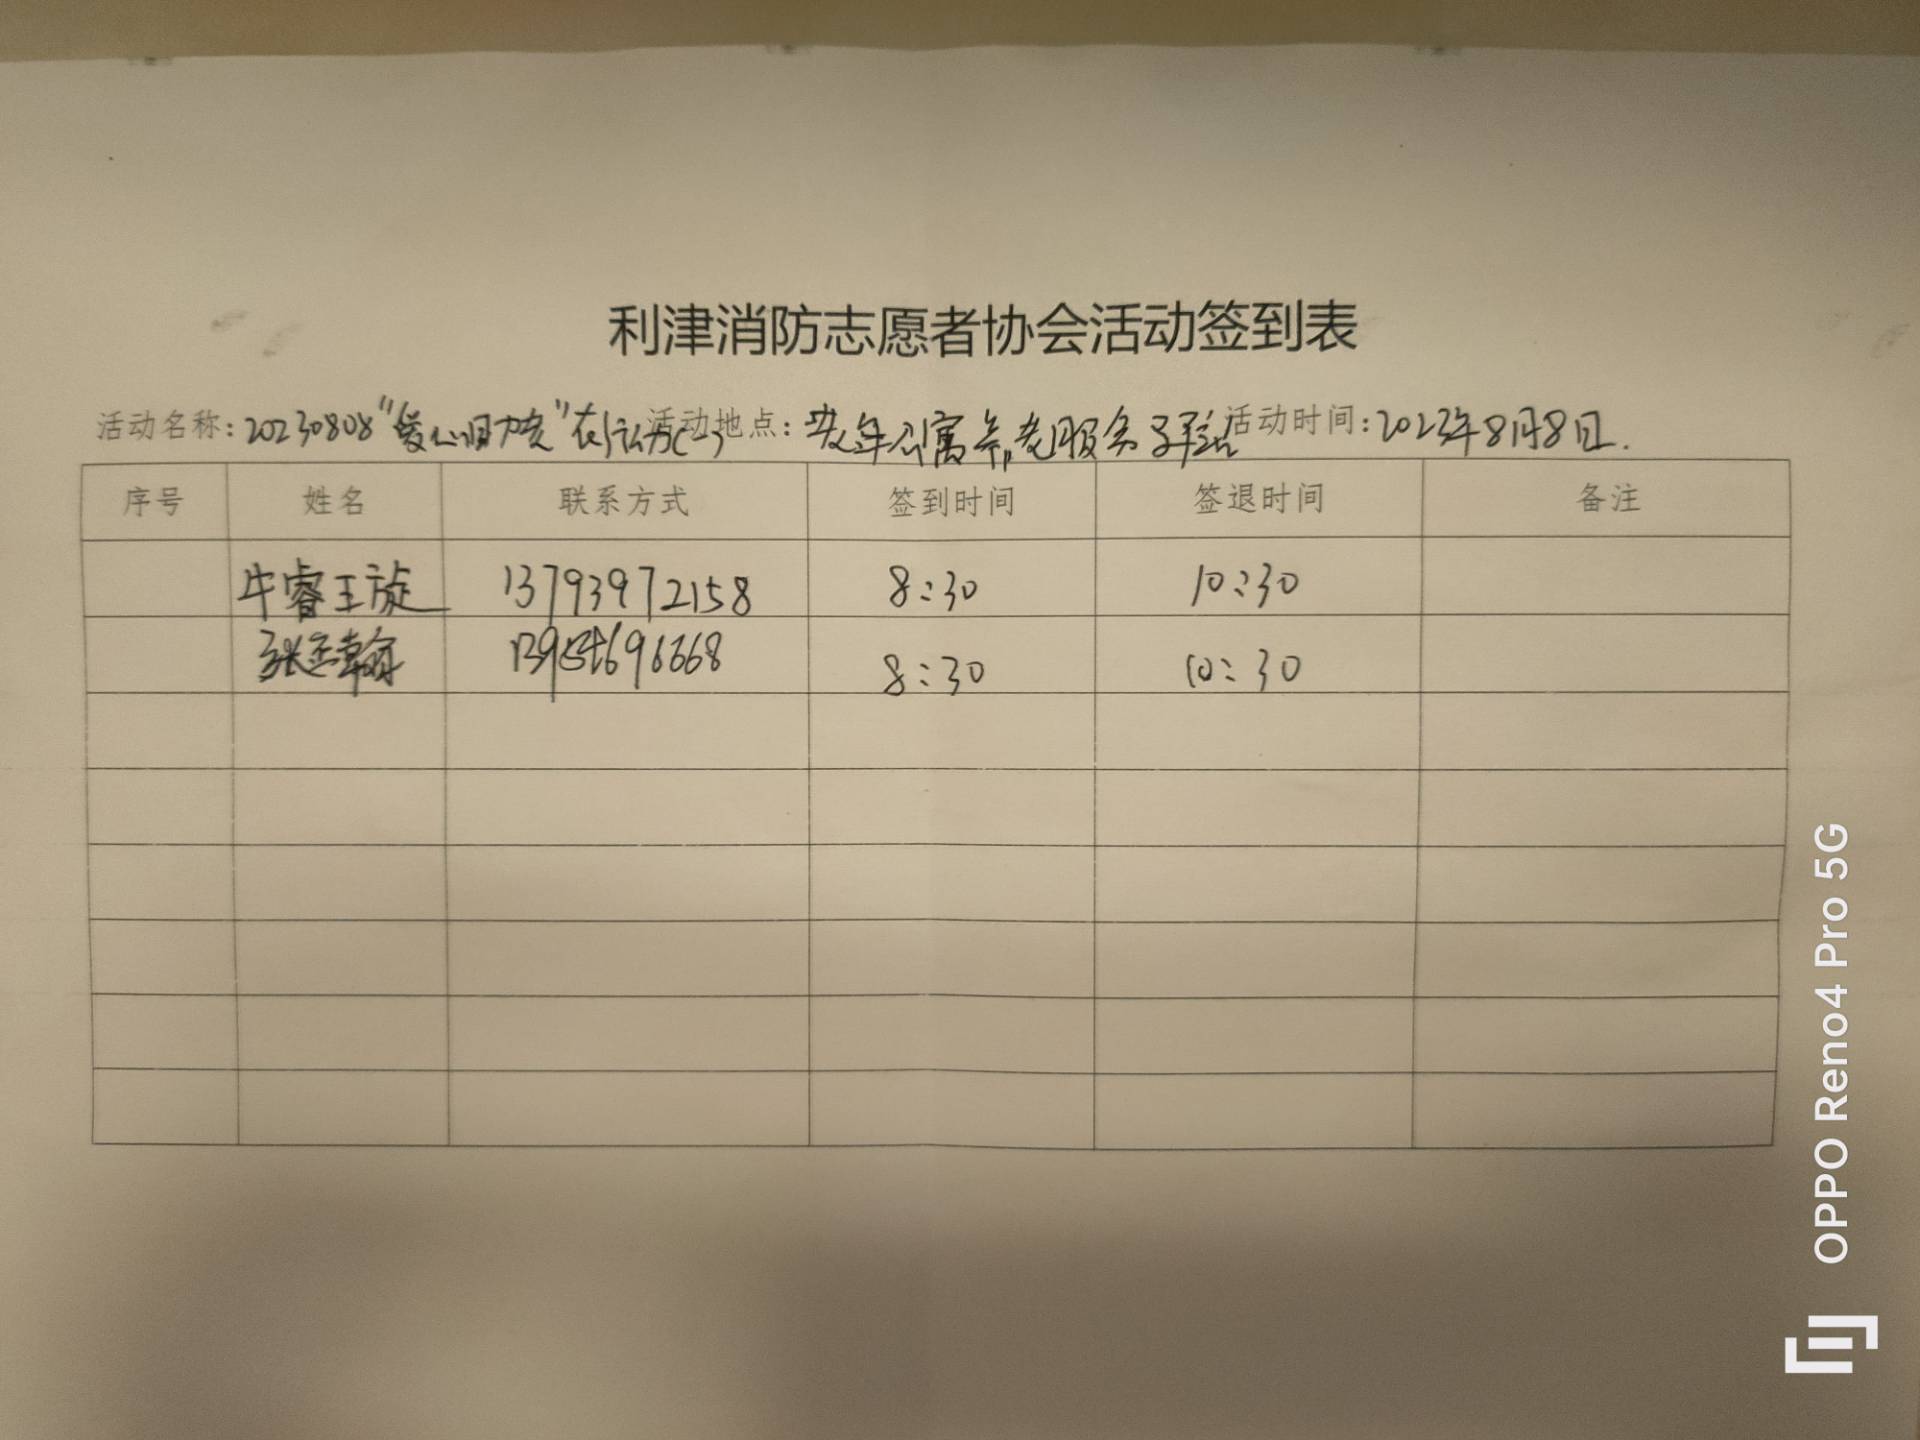 利津消防志愿者协会活动签到表
活动名称:20230808"爱心助力老"在行动(一) 活动地点: 年公寓养老服务 站 活动时间:2023年8月8日.
序号 姓名 联系方式 签到时间 签退时间 备注
牛睿王旋 13793972158 8:30 10:30
张 翰 8:30 10:30
OPPO Reno4 Pro 5G